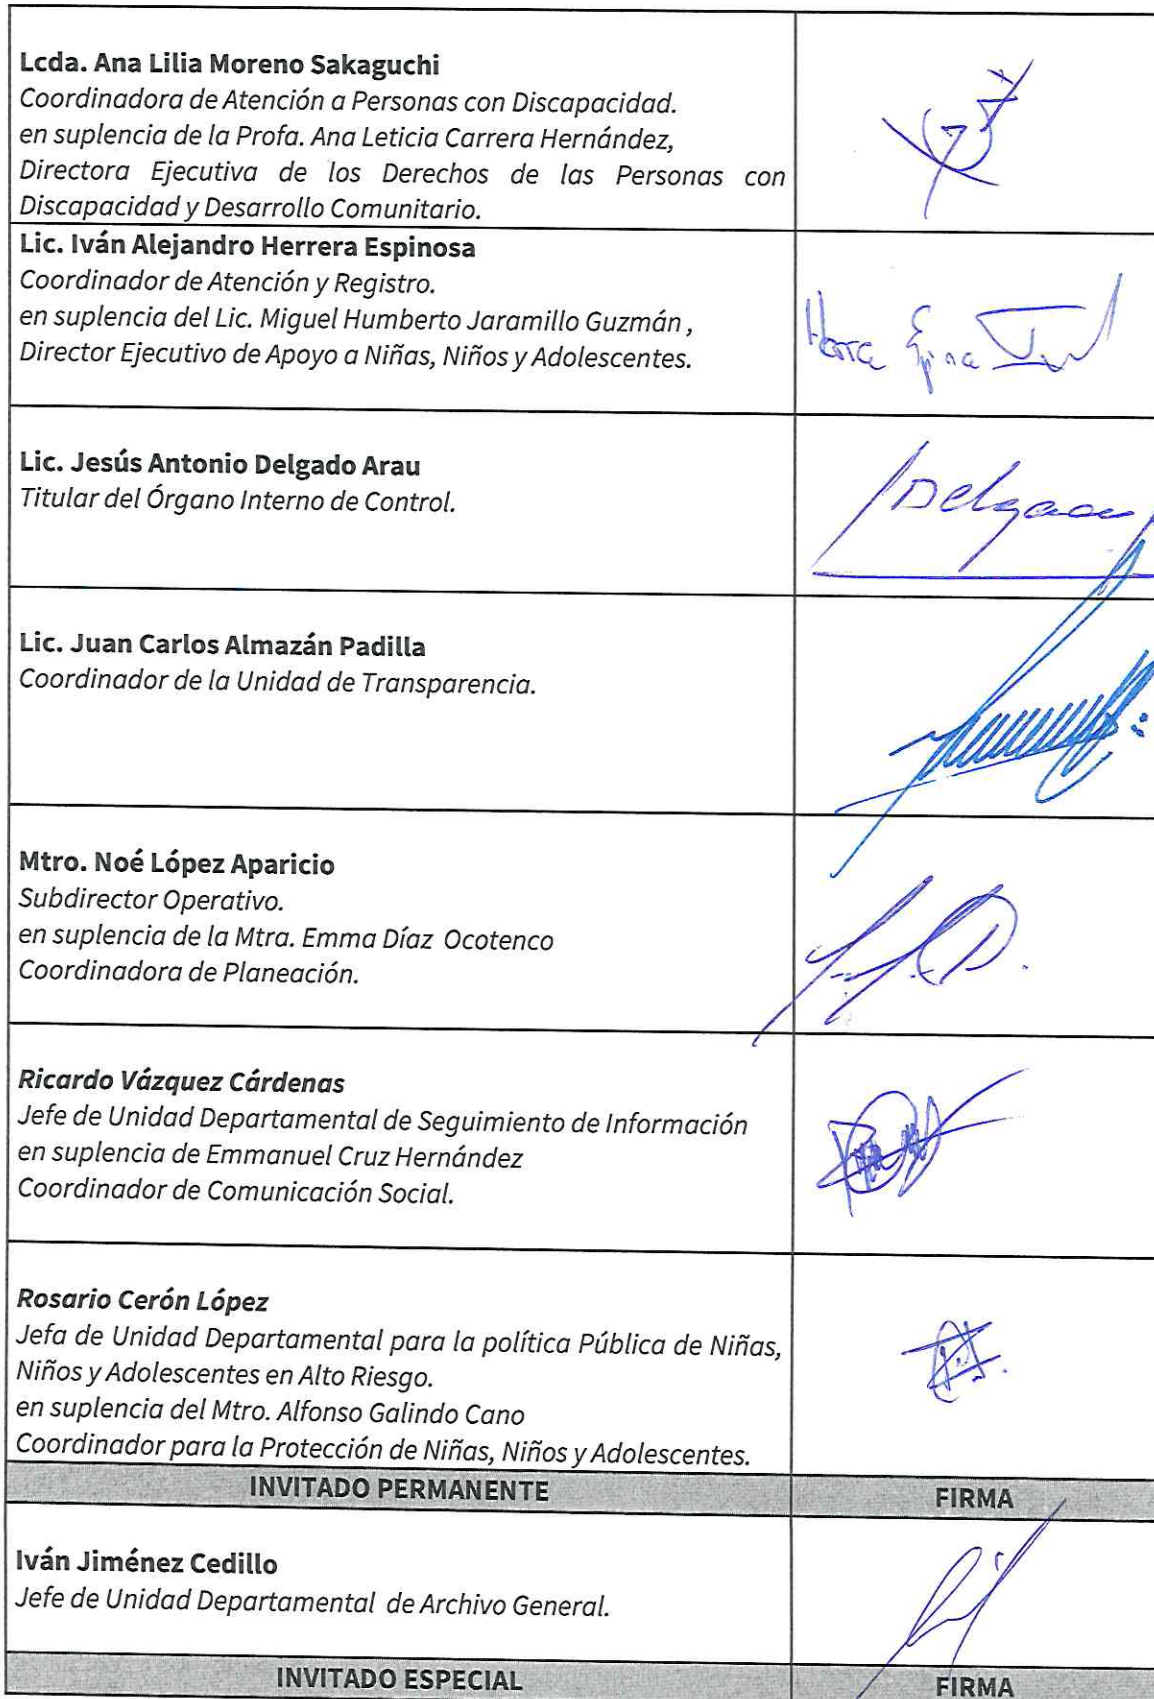 Lcda. Ana Lilia Moreno Sakaguchi
Coordinadora de Atención a Personas con Discapacidad.
en suplencia de la Profa. Ana Leticia Carrera Hernández,
Directora Ejecutiva de los Derechos de las Personas con
Discapacidad y Desarrollo Comunitario.
Lic. Iván Alejandro Herrera Espinosa
Coordinador de Atención y Registro.
en suplencia del Lic. Miguel Humberto Jaramillo Guzmán ,
Director Ejecutivo de Apoyo a Niñas, Niños y Adolescentes.
Lic. Jesús Antonio Delgado Arau
Titular del Órgano Interno de Control.
Lic. Juan Carlos Almazán Padilla
Coordinador de la Unidad de Transparencia.
Mtro. Noé López Aparicio
Subdirector Operativo.
en suplencia de la Mtra. Emma Díaz Ocotenco
Coordinadora de Planeación.
Ricardo Vázquez Cárdenas
Jefe de Unidad Departamental de Seguimiento de Información
en suplencia de Emmanuel Cruz Hernández
Coordinador de Comunicación Social.
Rosario Cerón López
Jefa de Unidad Departamental para la política Pública de Niñas,
Niños y Adolescentes en Alto Riesgo.
en suplencia del Mtro. Alfonso Galindo Cano
Coordinador para la Protección de Niñas, Niños y Adolescentes.
INVITADO PERMANENTE FIRMA
Iván Jiménez Cedillo
Jefe de Unidad Departamental de Archivo General.
INVITADO ESPECIAL FIRMA